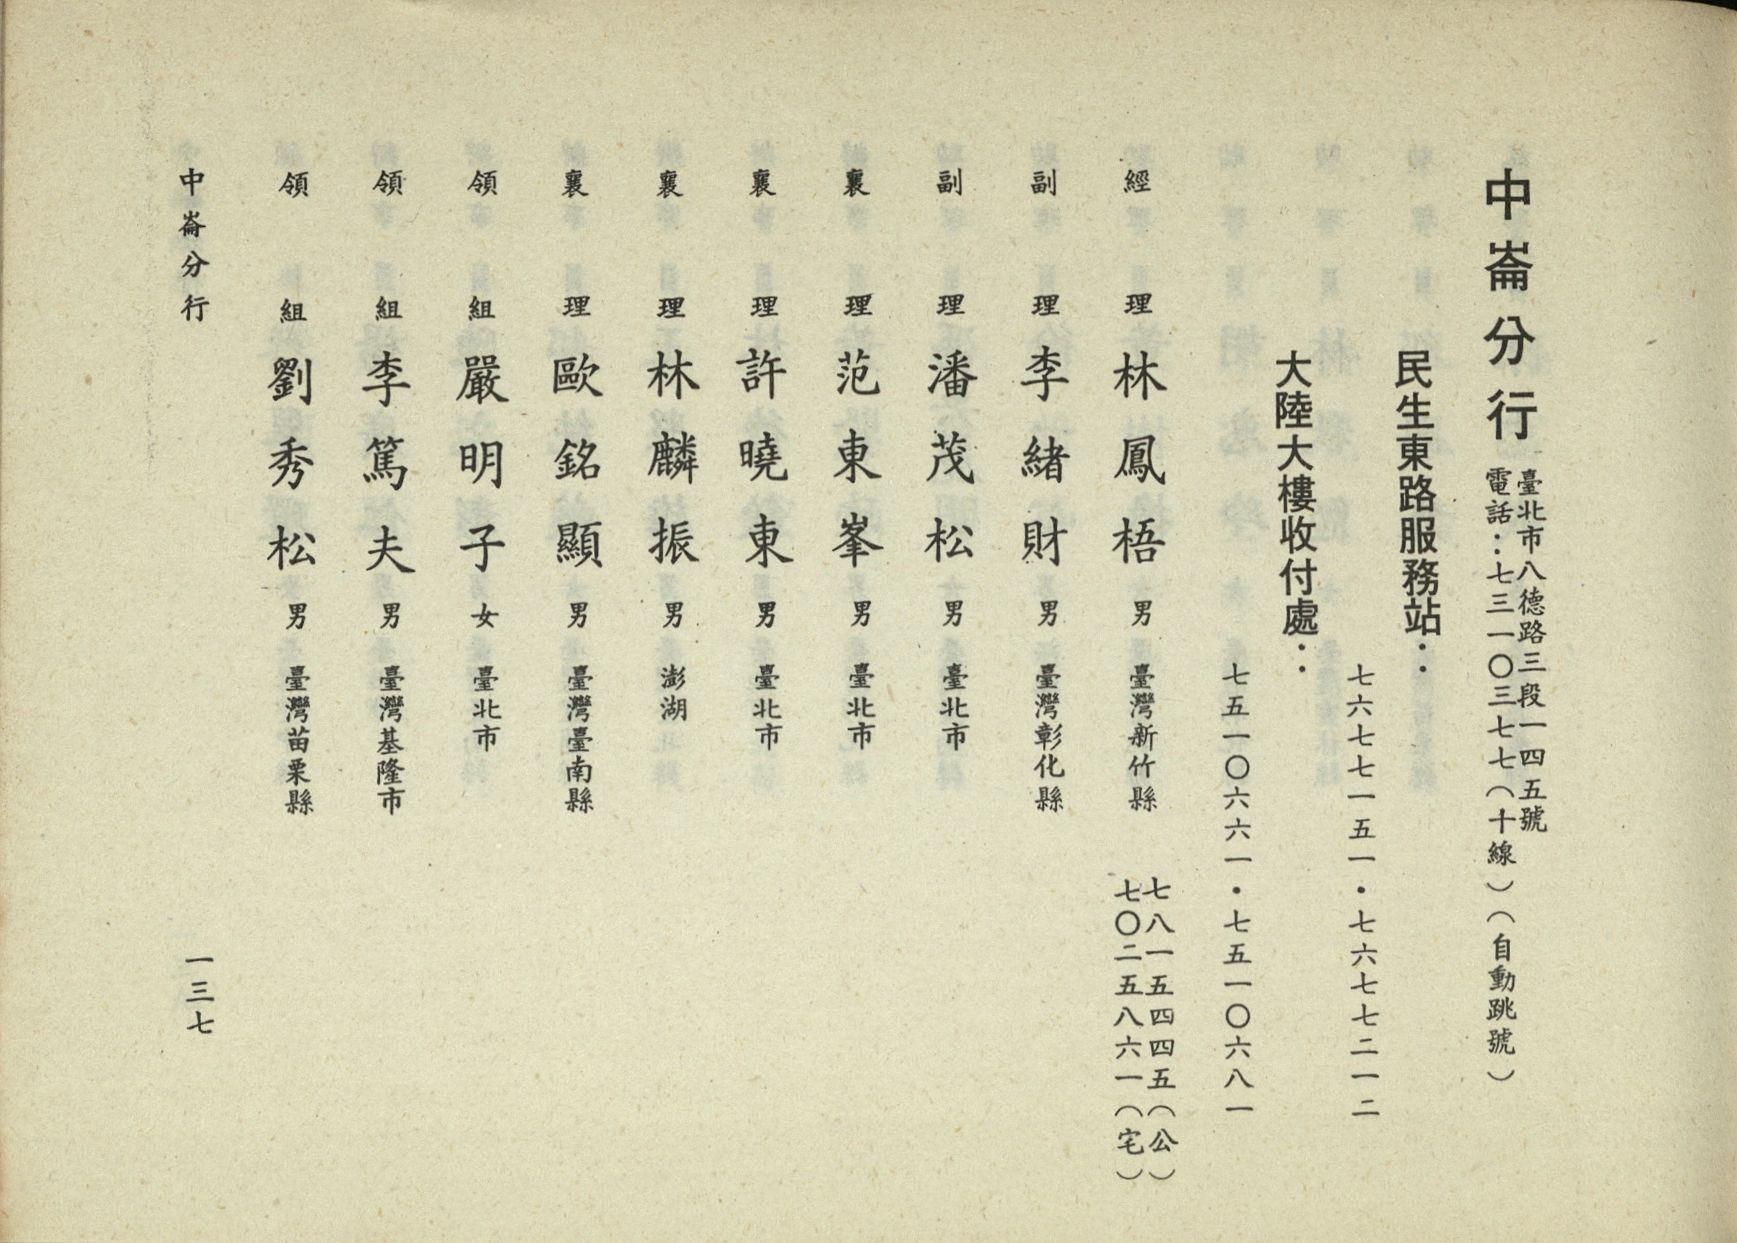 中崙分行
臺北市八德路三段一四五號
電話：七三一〇三七七（十線）（自動跳號）
民生東路服務站：
七六七七一五一・七六七七二一二
大陸大樓收付處：
七五一〇六六一・七五一〇六八一
經理 林鳳梧 男 臺灣新竹縣 七八一五四四五（公）
七〇二五八六一（宅）
副理 李緒財 男 臺灣彰化縣
副理 潘茂松 男 臺北市
襄理 范東峯 男 臺北市
襄理 許曉東 男 臺北市
襄理 林麟振 男 澎湖
襄理 歐銘顯 男 臺灣臺南縣
領組 嚴明子 女 臺北市
領組 李篤夫 男 臺灣基隆市
領組 劉秀松 男 臺灣苗栗縣
中崙分行
一三七